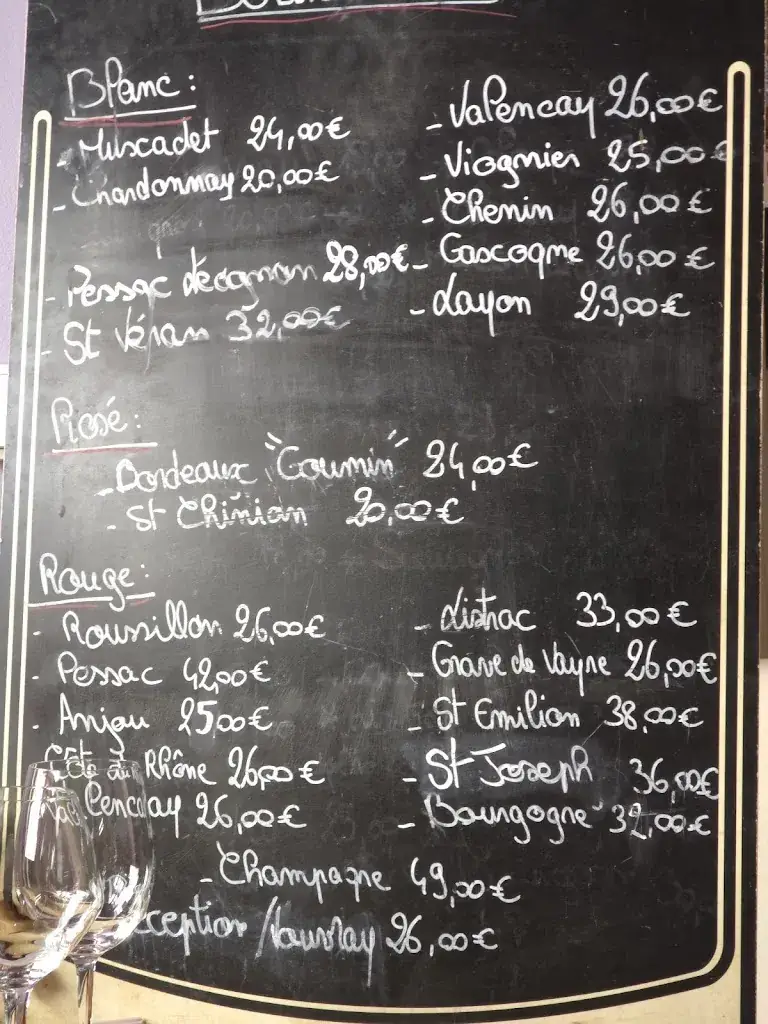 Blanc :
- Muscadet 24,00€
- Chardonnay 20,00€
- Pessac Léognan 28,00€
- St Véran 32,00€
- Valencay 26,00€
- Viognier 25,00€
- Chenin 26,00€
- Gascogne 26,00€
- Layon 29,00€
Rosé :
- Bordeaux "Goumin" 24,00€
- St Chinian 20,00€
Rouge :
- Roussillon 26,00€
- Pessac 42,00€
- Anjou 25,00€
Côte du Rhône 26,00€
Valencay 26,00€
- Listrac 33,00€
- Grave de Vayre 26,00€
- St Emilion 38,00€
- St Joseph 36,00€
- Bourgogne 32,00€
- Champagne 49,00€
ception / Vouvray 26,00€